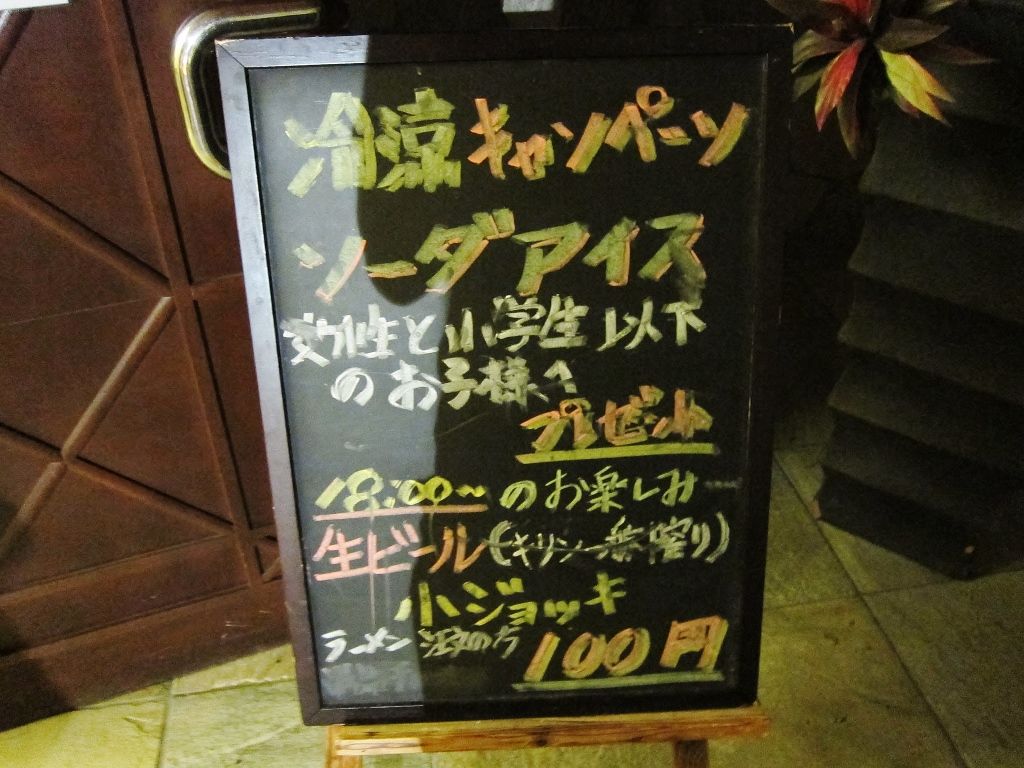 冷涼キャンペーン
ソーダアイス
女性と小学生以下
のお子様へ
プレゼント
18:00〜のお楽しみ
生ビール(キリン一番搾り)
小ジョッキ
ラーメン注文の方 100円